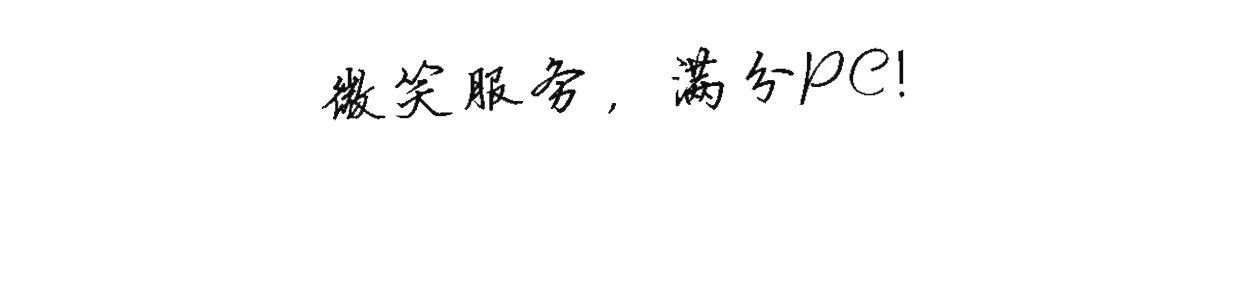 微笑服务，满分PC!